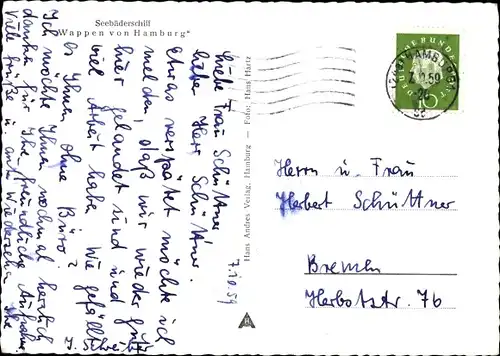 Seebäderschiff
"Wappen von Hamburg"
7.10.59
Liebe Frau Schüttner,
lieber Herr Schüttner!
Etwas verspätet möchte ich
melden, daß wir wieder gut
hier gelandet sind und
viel Arbeit habe. Wie gefällt
es Ihnen ohne Büro?
Ich möchte Ihnen nochmal herzlich
danken für Ihre freundliche Aufnahme.
Viele Grüße u. auf Wiedersehn
Ihre
Hans Andres Verlag, Hamburg — Foto: Hans Hartz
DEUTSCHE BUNDESPOST
10
HAMBURG
59
Herrn u. Frau
Herbert Schüttner
Bremen
Herbststr. 76